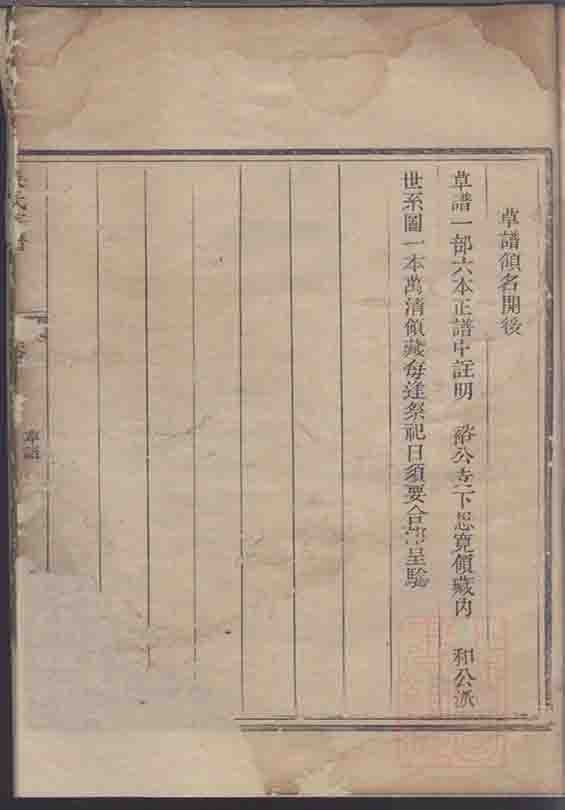 草譜領名開後
草譜一部六本正譜中註明 裕公支下恕寬領藏內 和公派
世系圖一本萬清領藏每逢祭祀日須要合部呈驗
氏宗譜
草譜